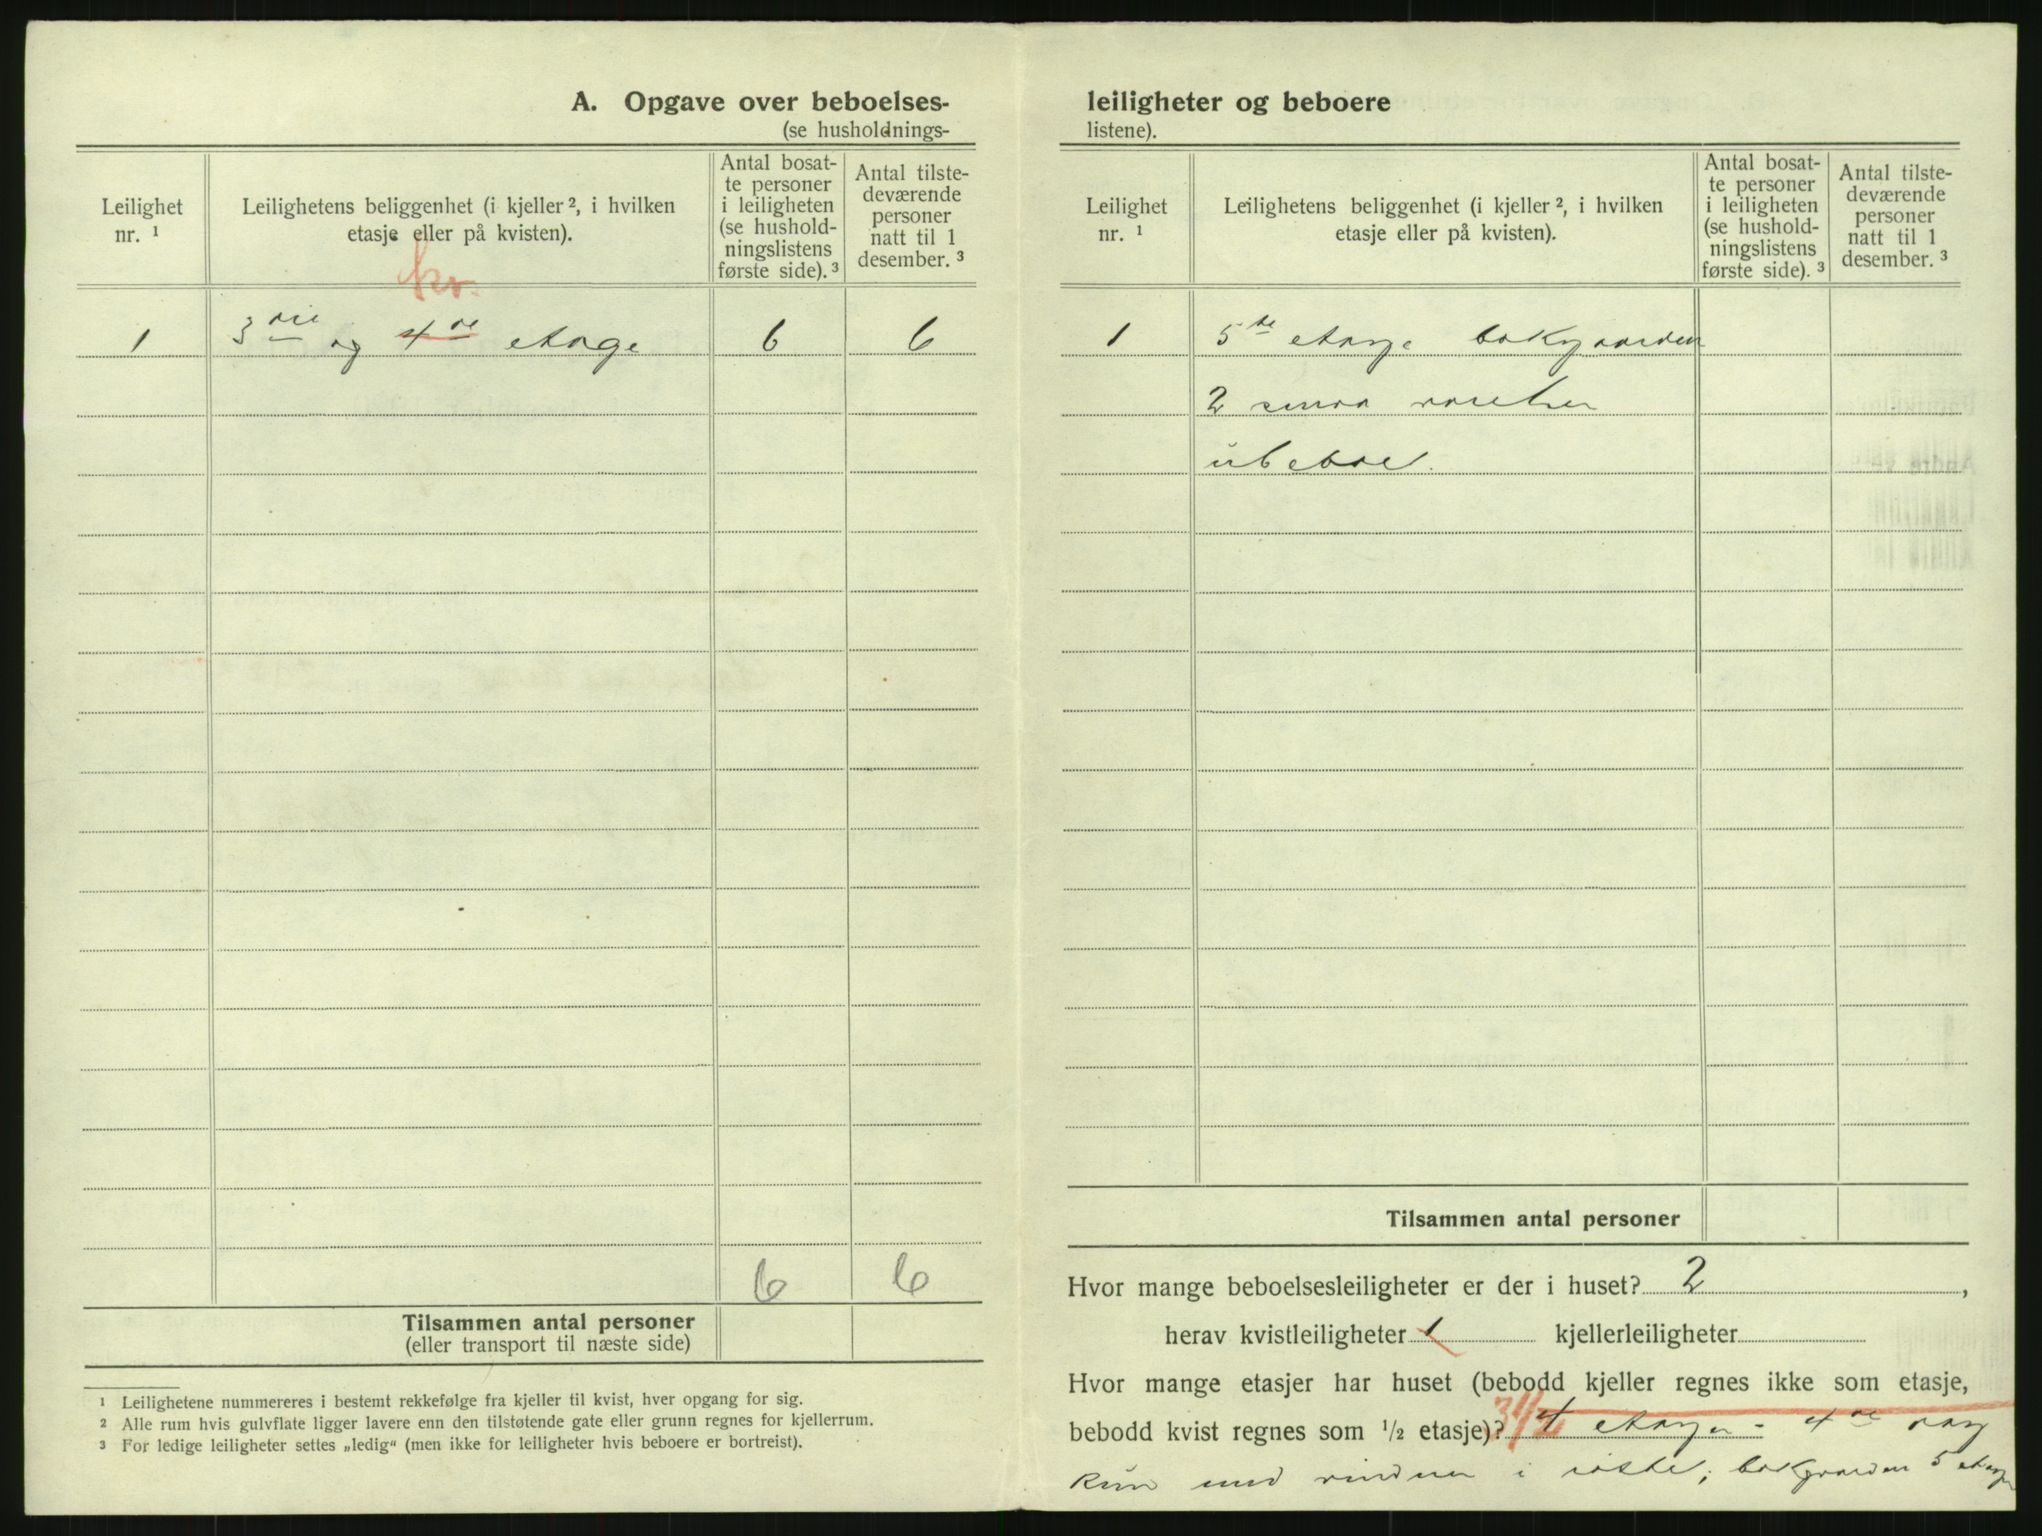 A. Opgave over beboelses-
(se husholdnings-
Leilighet
nr. ¹
Leilighetens beliggenhet (i kjeller ², i hvilken
etasje eller på kvisten).
Antal bosat-
te personer
i leiligheten
(se hushold-
ningslistens
første side). ³
Antal tilste-
deværende
personer
natt til 1
desember. ³
kv.
1 3die og 4de etage 6 6
6 6
Tilsammen antal personer
(eller transport til næste side)
¹ Leilighetene nummereres i bestemt rekkefølge fra kjeller til kvist, hver opgang for sig.
² Alle rum hvis gulvflate ligger lavere enn den tilstøtende gate eller grunn regnes for kjellerrum.
³ For ledige leiligheter settes „ledig“ (men ikke for leiligheter hvis beboere er bortreist).
leiligheter og beboere
listene).
Leilighet
nr. ¹
Leilighetens beliggenhet (i kjeller ², i hvilken
etasje eller på kvisten).
Antal bosat-
te personer
i leiligheten
(se hushold-
ningslistens
første side). ³
Antal tilste-
deværende
personer
natt til 1
desember. ³
1 5te etage bakgaarden
2 smaa værelser
ubeboet.
Tilsammen antal personer
Hvor mange beboelsesleiligheter er der i huset? 2 ,
herav kvistleiligheter 1 kjellerleiligheter
Hvor mange etasjer har huset (bebodd kjeller regnes ikke som etasje,
bebodd kvist regnes som ½ etasje)? 3½ 4 etager - 4de
kun med vinduer i ; bakgaarden 5 etager